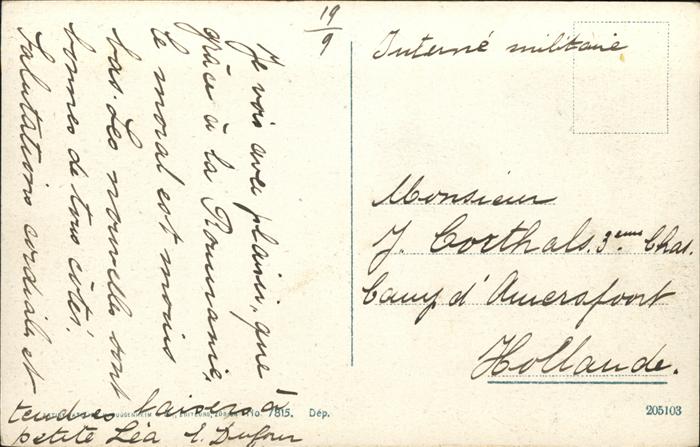 19/9
Je vois avec plaisir, que
grâce à la Roumanie,
le moral est moins
bas. Les nouvelles sont
bonnes de tous côtés.
Salutations cordiales et
tendres baisers à
petite Léa E. Dufour
Interné militaire
Monsieur
J. Corthals. 3eme Chas.
Camp d'Amersfoort
Hollande.
No. 7815. Dép.
205103